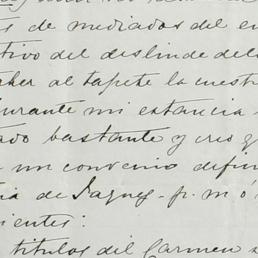 de mediados del en
tivo del deslinde del
cher al tapete la cuest
durante mi estancia
ado bastante y creo q
un convenio defin
ia de Jaguey - p. m ó
ientes:
titulos del Carmen s